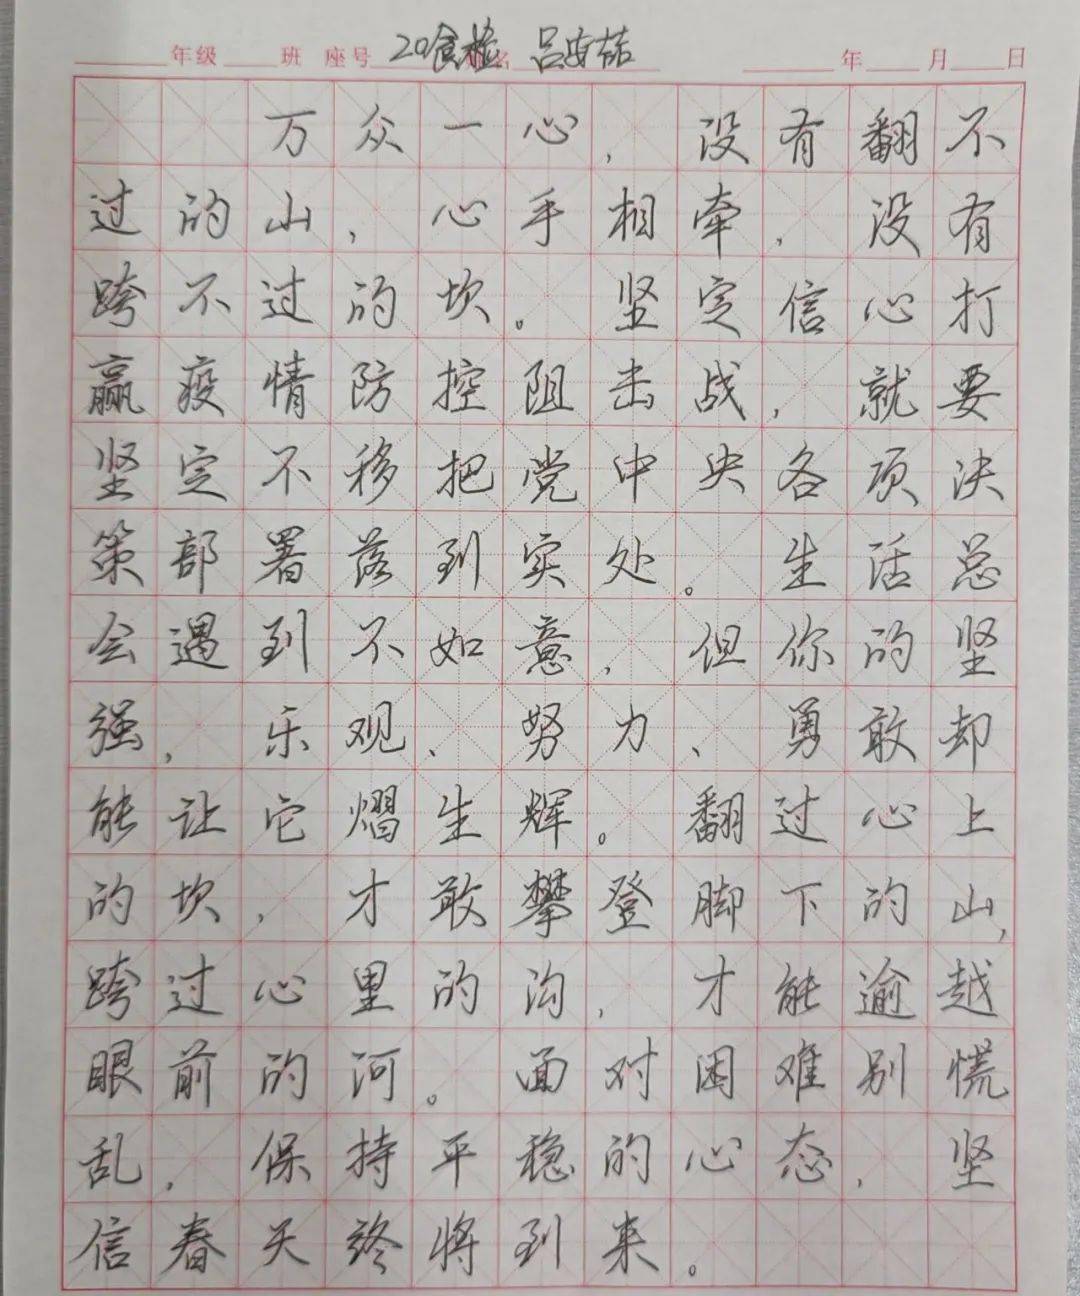 年级 班 座号 20食检 名 吕安喆 年 月 日
万众一心，没有翻不
过的山，心手相牵，没有
跨不过的坎。坚定信心打
赢疫情防控阻击战，就要
坚定不移把党中央各项决
策部署落到实处。生活总
会遇到不如意，但你的坚
强，乐观、努力、勇敢却
能让它熠生辉。翻过心上
的坎，才敢攀登脚下的山，
跨过心里的沟，才能逾越
眼前的河。面对困难别慌
乱，保持平稳的心态，坚
信春天终将到来。